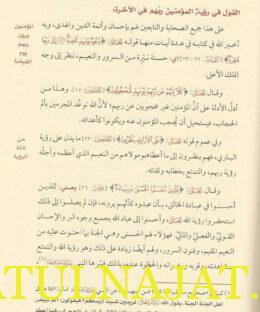 القول في رؤية المؤمنين ربّهم في الآخرة:
المؤمنون
يرون
ربهم
يوم
القيامة
على هذا جميع الصحابة والتابعين لهم بإحسان وأئمة الدين والهدى، وبه
أخبر الله في كتابه في عدة آيات منها قوله تعالى: ﴿وُجُوهٌ يَوْمَئِذٍ نَاضِرَةٌ إِلَى رَبِّهَا
نَاظِرَةٌ﴾ [القيامة: ٢٢-٢٣] أي: حسنة نيّرة من السرور والنعيم، تنظر إلى وجه
الملك الأعلى.
وقال تعالى: ﴿كَلَّا إِنَّهُمْ عَنْ رَبِّهِمْ يَوْمَئِذٍ لَمَحْجُوبُونَ﴾ [المطففين: ١٥]. وهذا من
أدل الأدلة على أنّ المؤمنين غير محجوبين عن ربهم؛ لأنّ الله توعد المجرمين بألم
الحجاب، فيستحيل أن يُحجب المؤمنون عنه ويكونوا كأعدائه.
من
أدلة
الرؤية
وفي عموم قوله تعالى: ﴿عَلَى الْأَرَائِكِ يَنْظُرُونَ﴾ [المطففين: ٢٣] ما يدل على رؤية
الباري، فهم ينظرون إلى ما أعطاهم مولاهم من النعيم الذي أعظمه وأجلّه
رؤية ربهم، والتمتع بخطابه ولقائه.
وقال تعالى: ﴿لِلَّذِينَ أَحْسَنُوا الْحُسْنَى وَزِيَادَةٌ﴾ يعني: للذين
أحسنوا في عبادة الخالق، بأن عبدوه كأنهم يرونه، فإن لم يصلوا إلى ذلك
استحضروا رؤية الله تعالى، وأحسنوا إلى عباد الله بجميع وجوه البر والإحسان
القولي والفعلي والمالي، فهؤلاء لهم الحسنى وهي الجنة بما احتوت عليه من
النعيم المقيم، وفنون السرور، ولهم أيضًا زيادة على ذلك وهو رؤية الله والتمتع
ATULNAJAT.